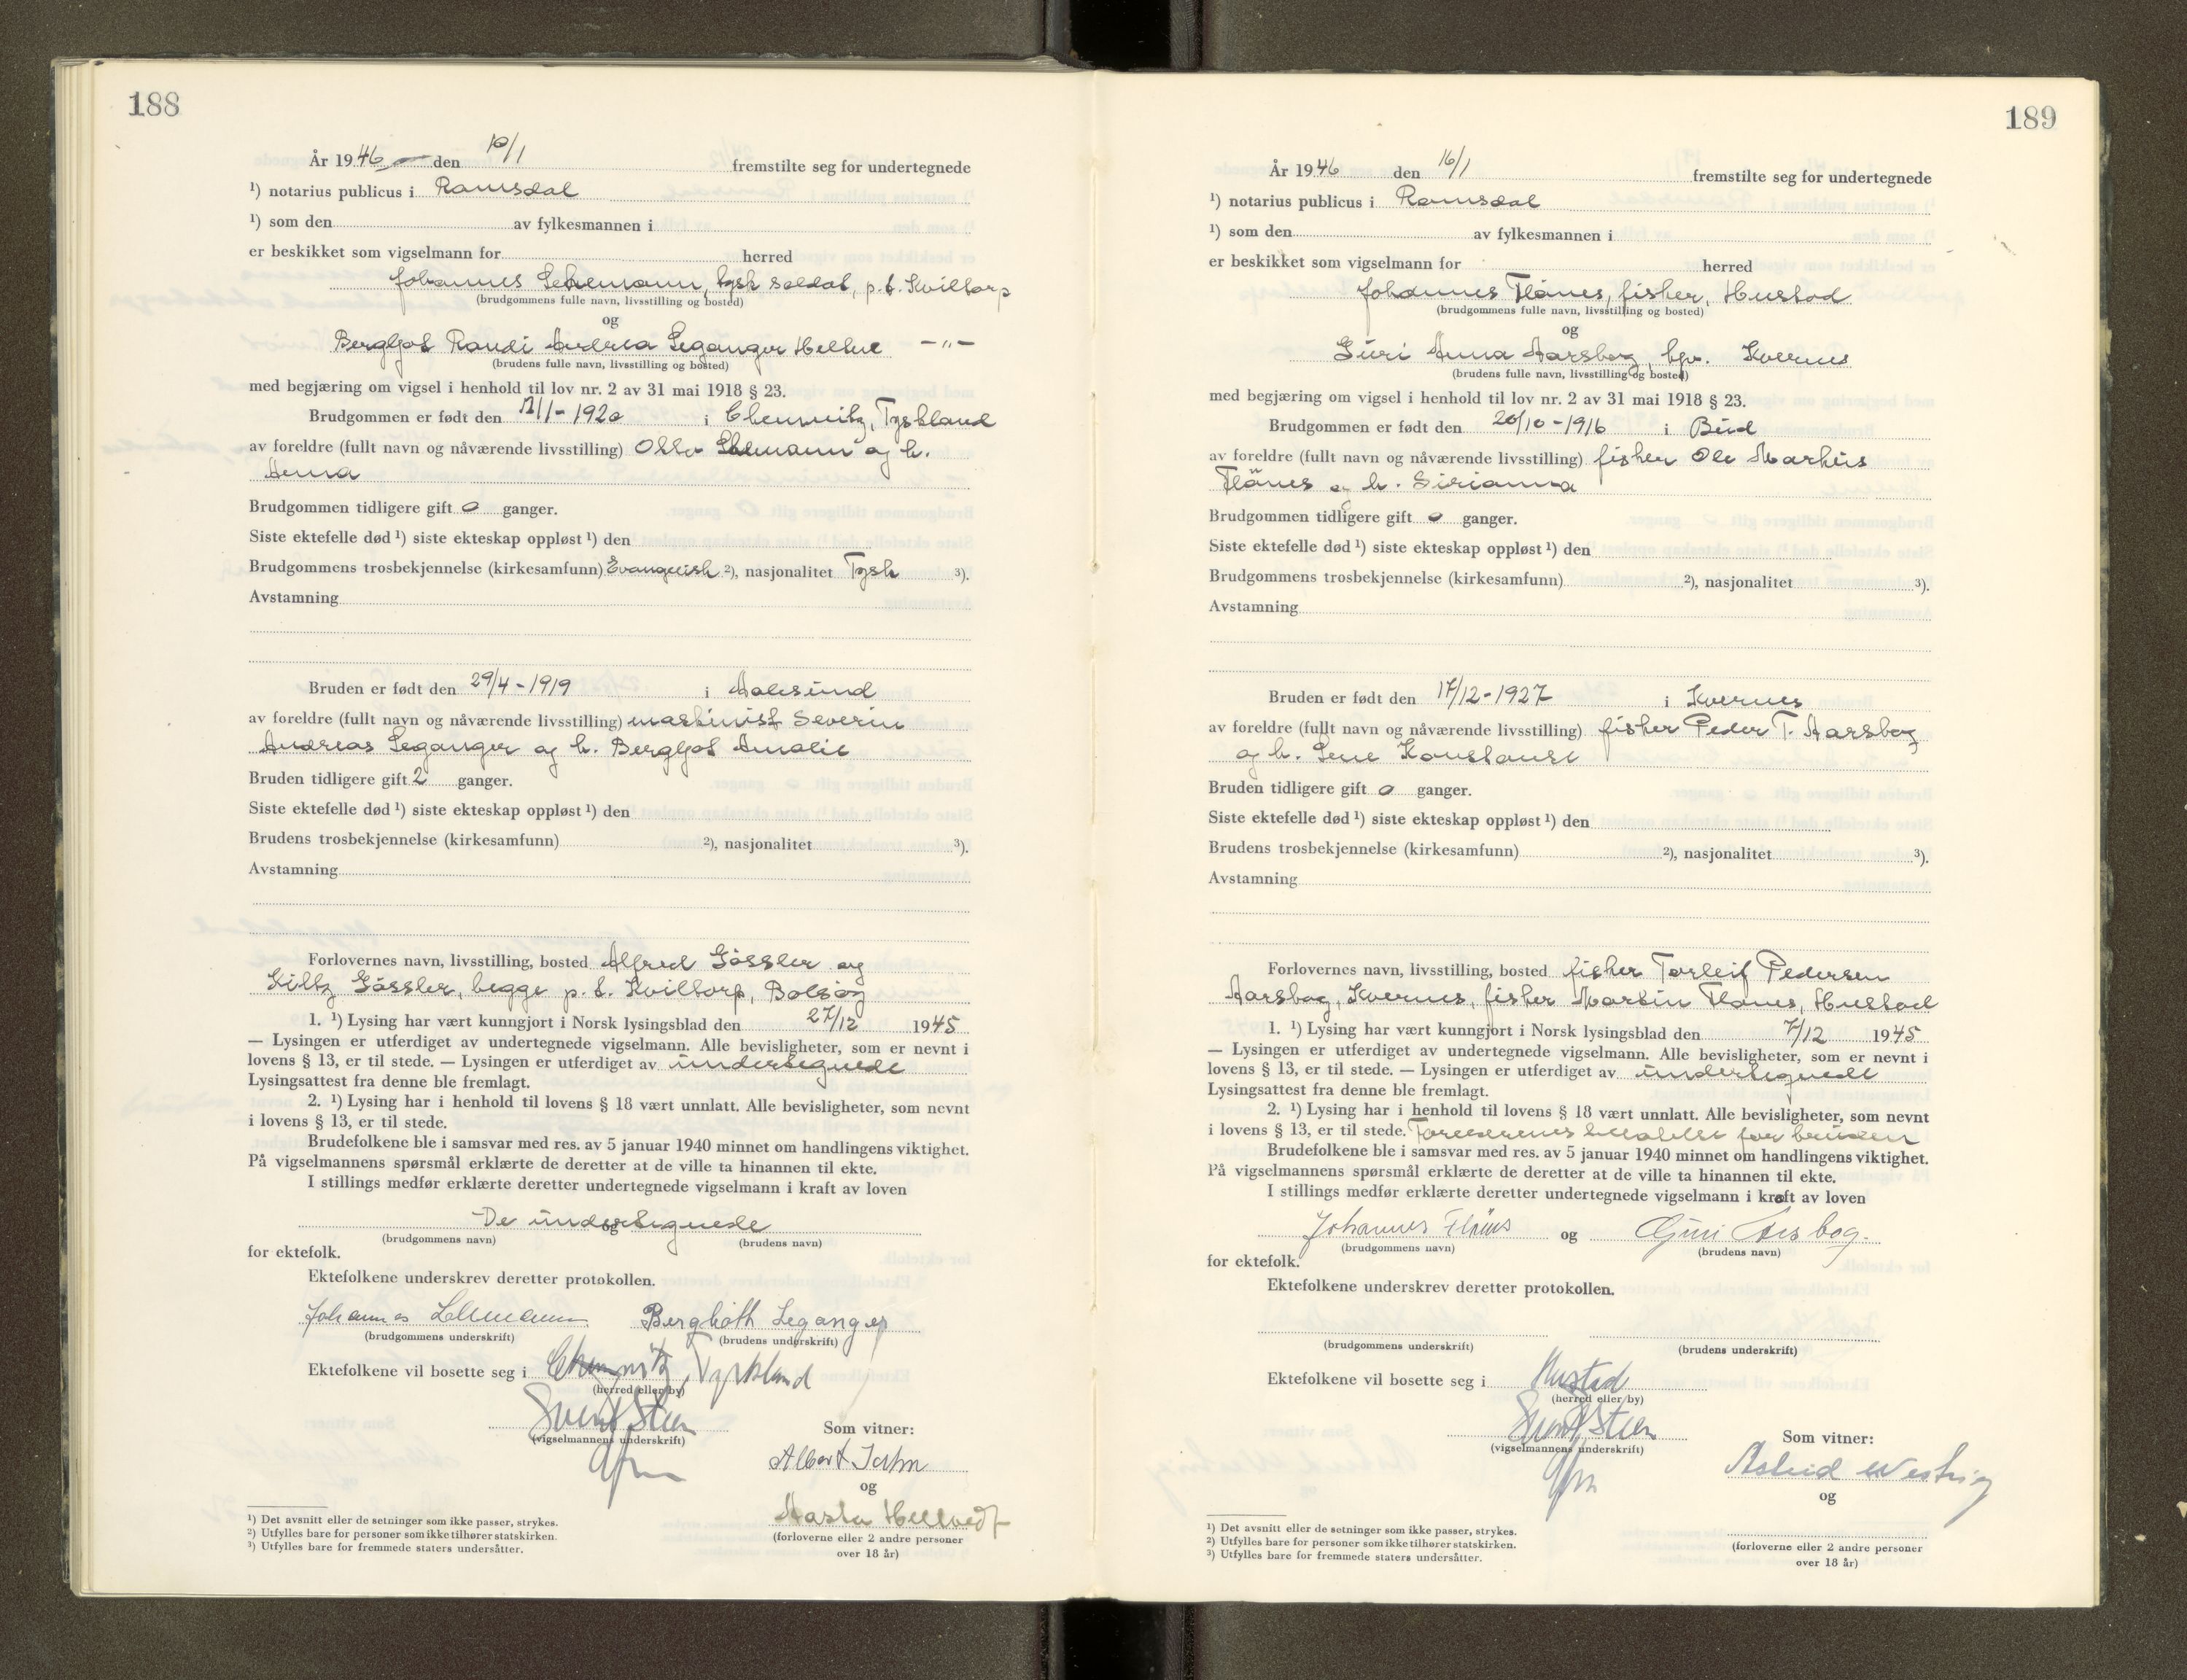 188
År 1946 den 10/1 fremstilte seg for undertegnede
¹) notarius publicus i Romsdal
¹) som den av fylkesmannen i
er beskikket som vigselmann for herred
Johannes Lehmann, tysk soldat, p.t. Kviltorp
(brudgommens fulle navn, livsstilling og bosted)
og
Bergljot Randi Andrea Leganger Helle -"-
(brudens fulle navn, livsstilling og bosted)
med begjæring om vigsel i henhold til lov nr. 2 av 31 mai 1918 § 23.
Brudgommen er født den 12/1-1920 i Chemnitz, Tyskland
av foreldre (fullt navn og nåværende livsstilling) Otto Lehmann og h.
Anna
Brudgommen tidligere gift 0 ganger.
Siste ektefelle død ¹) siste ekteskap oppløst ¹) den
Brudgommens trosbekjennelse (kirkesamfunn) Evangelisk ²), nasjonalitet Tysk ³).
Avstamning
Bruden er født den 29/4-1919 i Aalesund
av foreldre (fullt navn og nåværende livsstilling) maskinist Severin
Andreas Leganger og h. Bergljot Amalie
Bruden tidligere gift 2 ganger.
Siste ektefelle død ¹) siste ekteskap oppløst ¹) den
Brudens trosbekjennelse (kirkesamfunn) ²), nasjonalitet ³).
Avstamning
Forlovernes navn, livsstilling, bosted Alfred Gössler og
Gössler, begge p.t. Kviltorp, Bolsøy
1. ¹) Lysing har vært kunngjort i Norsk lysingsblad den 27/12 1945
— Lysingen er utferdiget av undertegnede vigselmann. Alle bevisligheter, som er nevnt i
lovens § 13, er til stede. — Lysingen er utferdiget av undertegnede
Lysingsattest fra denne ble fremlagt.
2. ¹) Lysing har i henhold til lovens § 18 vært unnlatt. Alle bevisligheter, som nevnt
i lovens § 13, er til stede.
Brudefolkene ble i samsvar med res. av 5 januar 1940 minnet om handlingens viktighet.
På vigselmannens spørsmål erklærte de deretter at de ville ta hinannen til ekte.
I stillings medfør erklærte deretter undertegnede vigselmann i kraft av loven
De undertegnede
og
(brudgommens navn) (brudens navn)
for ektefolk.
Ektefolkene underskrev deretter protokollen.
Johannes Lehmann Bergljoth Leganger
(brudgommens underskrift) (brudens underskrift)
Ektefolkene vil bosette seg i Chemnitz, Tyskland
(herred eller by)
Steen
(vigselmannens underskrift)
Som vitner:
Albert
og
(forloverne eller 2 andre personer
over 18 år)
¹) Det avsnitt eller de setninger som ikke passer, strykes.
²) Utfylles bare for personer som ikke tilhører statskirken.
³) Utfylles bare for fremmede staters undersåtter.
189
År 1946 den 16/1 fremstilte seg for undertegnede
¹) notarius publicus i Romsdal
¹) som den av fylkesmannen i
er beskikket som vigselmann for herred
Johannes Flånes, fisker, Hustad
(brudgommens fulle navn, livsstilling og bosted)
og
Guri Anna Aarsbog, hjv. Kvernes
(brudens fulle navn, livsstilling og bosted)
med begjæring om vigsel i henhold til lov nr. 2 av 31 mai 1918 § 23.
Brudgommen er født den 20/10-1916 i Bud
av foreldre (fullt navn og nåværende livsstilling) fisker Ole Markus
Flånes og h. Sirianna
Brudgommen tidligere gift 0 ganger.
Siste ektefelle død ¹) siste ekteskap oppløst ¹) den
Brudgommens trosbekjennelse (kirkesamfunn) ²), nasjonalitet ³).
Avstamning
Bruden er født den 17/12-1927 i Kvernes
av foreldre (fullt navn og nåværende livsstilling) fisker Peder T. Aarsbog
og h. Lene Konstanse
Bruden tidligere gift 0 ganger.
Siste ektefelle død ¹) siste ekteskap oppløst ¹) den
Brudens trosbekjennelse (kirkesamfunn) ²), nasjonalitet ³).
Avstamning
Forlovernes navn, livsstilling, bosted fisker Torleif Pedersen
Aarsbog, Kvernes, fisker Martin Flånes, Hustad
1. ¹) Lysing har vært kunngjort i Norsk lysingsblad den 7/12 1945
— Lysingen er utferdiget av undertegnede vigselmann. Alle bevisligheter, som er nevnt i
lovens § 13, er til stede. — Lysingen er utferdiget av undertegnede
Lysingsattest fra denne ble fremlagt.
2. ¹) Lysing har i henhold til lovens § 18 vært unnlatt. Alle bevisligheter, som nevnt
i lovens § 13, er til stede. Foreldrenes tillatelse for bruden
Brudefolkene ble i samsvar med res. av 5 januar 1940 minnet om handlingens viktighet.
På vigselmannens spørsmål erklærte de deretter at de ville ta hinannen til ekte.
I stillings medfør erklærte deretter undertegnede vigselmann i kraft av loven
Johannes Flånes og Guri Arsbog.
(brudgommens navn) (brudens navn)
for ektefolk.
Ektefolkene underskrev deretter protokollen.
(brudgommens underskrift) (brudens underskrift)
Ektefolkene vil bosette seg i Hustad
(herred eller by)
Steen
(vigselmannens underskrift)
Som vitner:
Astrid
og
(forloverne eller 2 andre personer
over 18 år)
¹) Det avsnitt eller de setninger som ikke passer, strykes.
²) Utfylles bare for personer som ikke tilhører statskirken.
³) Utfylles bare for fremmede staters undersåtter.